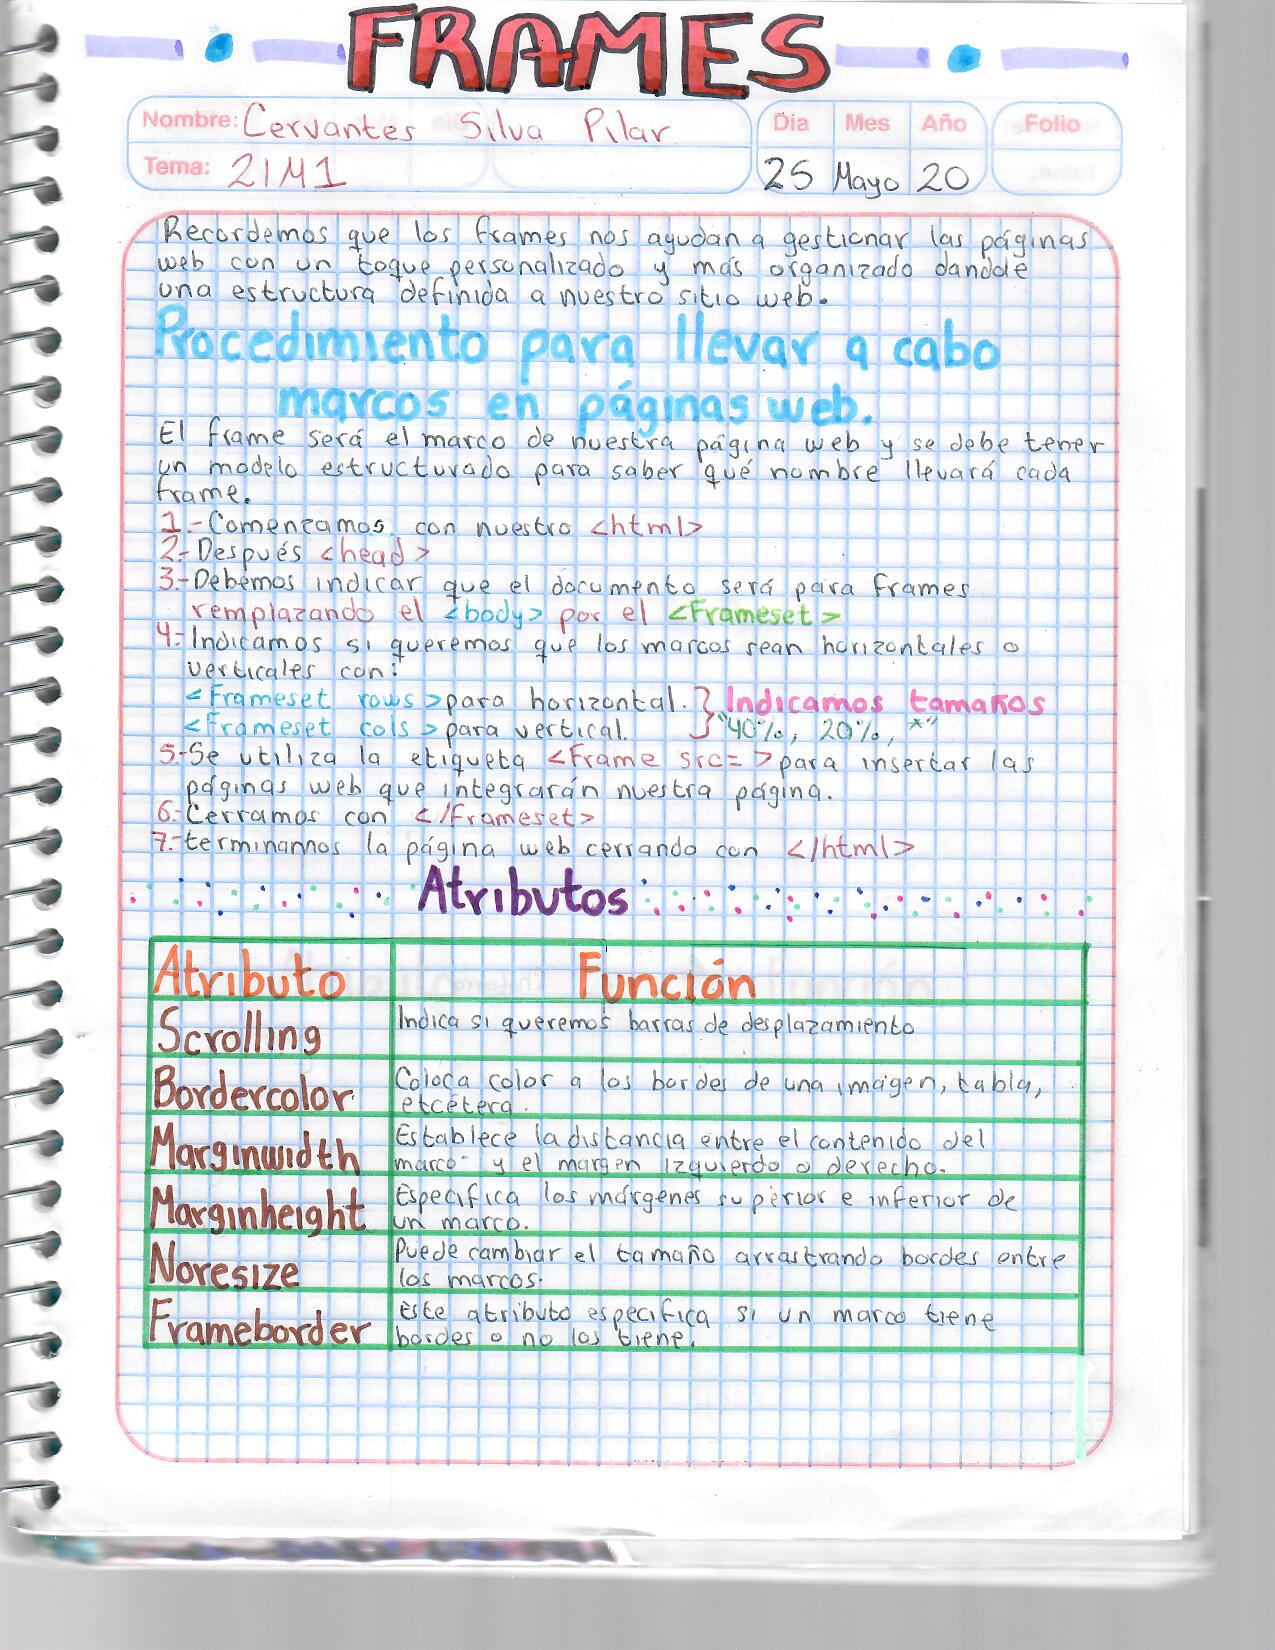 FRAMES
Nombre: Cervantes Silva Pilar
Día Mes Año Folio
Tema: 21M1
25 Mayo 20
Recordemos que los frames nos ayudan a gestionar las páginas
web con un toque personalizado y más organizado dandole
una estructura definida a nuestro sitio web.
Procedimiento para llevar a cabo
marcos en páginas web.
El frame será el marco de nuestra página web y se debe tener
un modelo estructurado para saber qué nombre llevará cada
frame.
1.-Comenzamos con nuestro <html>
2.-Después <head>
3.-Debemos indicar que el documento será para frames
remplazando el <body> por el <Frameset>
4.-Indicamos si queremos que los marcos sean horizontales o
verticales con:
<Frameset rows >para horizontal. } Indicamos tamaños
<Frameset cols > para vertical. "40%, 20%, *"
5.-Se utiliza la etiqueta <frame src= >para insertar las
páginas web que integrarán nuestra página.
6.-Cerramos con </Frameset>
7.-terminannos la página web cerrando con </html>
Atributos
Atributo Función
Scrolling Indica si queremos barras de desplazamiento
Bordercolor Coloca color a los bordes de una imágen, tabla,
etcétera.
Marginwidth Establece la distancia entre el contenido del
marco y el margen izquierdo o derecho.
Marginheight Especifica los márgenes superior e inferior de
un marco.
Noresize Puede cambiar el tamaño arrastrando bordes entre
los marcos.
Frameborder Este atributo especifica si un marco tiene
bordes o no los tiene.